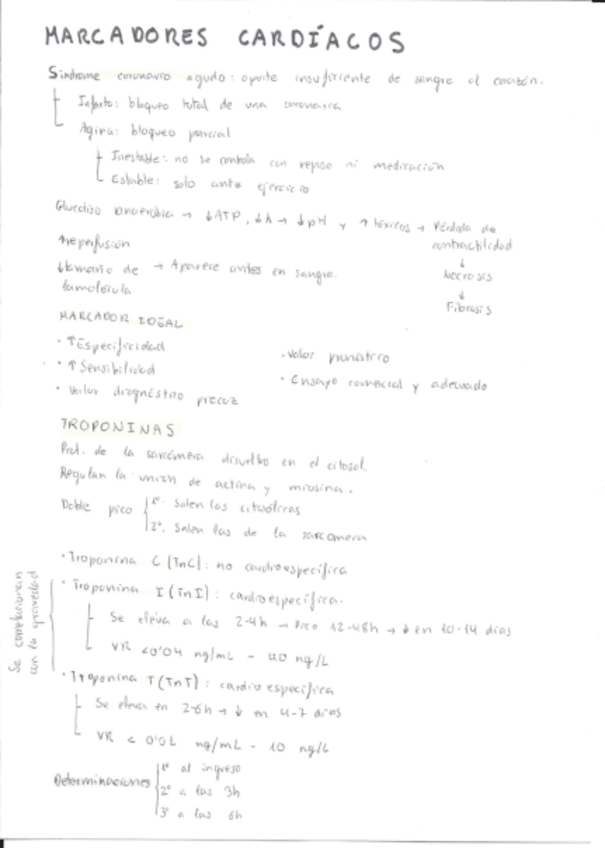 MARCADORES CARDÍACOS
Síndrome coronario agudo: aporte insuficiente de sangre al corazón.
Infarto: bloqueo total de una coronaria
Agina: bloqueo parcial
Inestable: no se controla con reposo ni medicación
Estable: solo ante ejercicio
Glucólisis anaerobia → ↓ATP, ↓h → ↓pH y ↑ tóxicos → Pérdida de contractilidad
↓
Necrosis
↓
Fibrosis
↑reperfusión
↓tamaño de la molécula → Aparece antes en sangre.
MARCADOR IDEAL
· ↑Especificidad
· ↑Sensibilidad
· Valor diagnóstico precoz
· Valor
· Ensayo comercial y adecuado
TROPONINAS
Prot. de la sarcómera disuelto en el citosol.
Regulan la unión de actina y miosina.
Doble pico
1º. Salen las citosólicas
2º. Salen las de la sarcomera
· Troponina C (TnC): no cardioespecífica
Se correlacionan con la gravedad
· Troponina I (TnI): cardioespecífica.
Se eleva a las 2-4h → Pico 12-48h → ↓ en 10-14 días
VR <0'04 ng/mL - 40 ng/L
· Troponina T (TnT): cardioespecífica
Se eleva en 2-6h → ↓ en 4-7 días
VR < 0'01 ng/mL - 10 ng/L
Determinaciones
1ª al ingreso
2ª a las 3h
3ª a las 6h